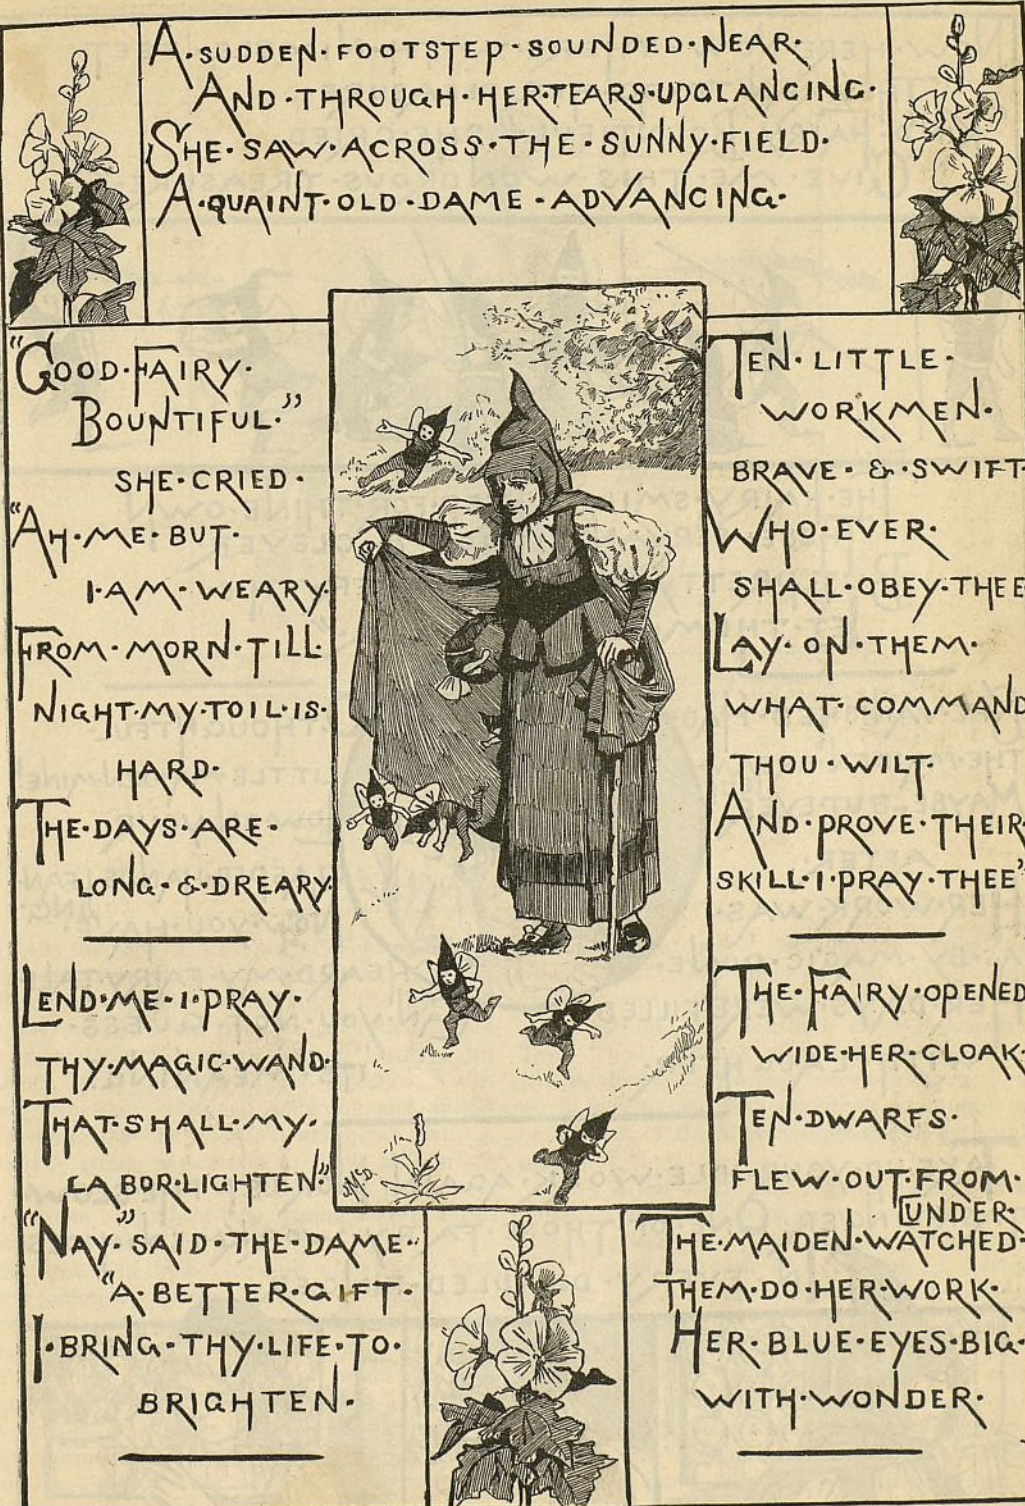 A·SUDDEN·FOOTSTEP·SOUNDED·NEAR·
AND·THROUGH·HER·TEARS·UPGLANCING·
SHE·SAW·ACROSS·THE·SUNNY·FIELD·
A·QUAINT·OLD·DAME·ADVANCING·
"GOOD·FAIRY·
BOUNTIFUL·"
SHE·CRIED·
"AH·ME·BUT·
I·AM·WEARY·
FROM·MORN·TILL·
NIGHT·MY·TOIL·IS·
HARD·
THE·DAYS·ARE·
LONG·&·DREARY·
LEND·ME·I·PRAY·
THY·MAGIC·WAND·
THAT·SHALL·MY·
LABOR·LIGHTEN·"
"NAY·" SAID·THE·DAME·
"A·BETTER·GIFT·
I·BRING·THY·LIFE·TO·
BRIGHTEN·
TEN·LITTLE·
WORKMEN·
BRAVE·&·SWIFT·
WHO·EVER·
SHALL·OBEY·THEE
LAY·ON·THEM·
WHAT·COMMAND
THOU·WILT·
AND·PROVE·THEIR·
SKILL·I·PRAY·THEE"
THE·FAIRY·OPENED
WIDE·HER·CLOAK·
TEN·DWARFS·
FLEW·OUT·FROM·
UNDER·
THE·MAIDEN·WATCHED·
THEM·DO·HER·WORK·
HER·BLUE·EYES·BIG·
WITH·WONDER·